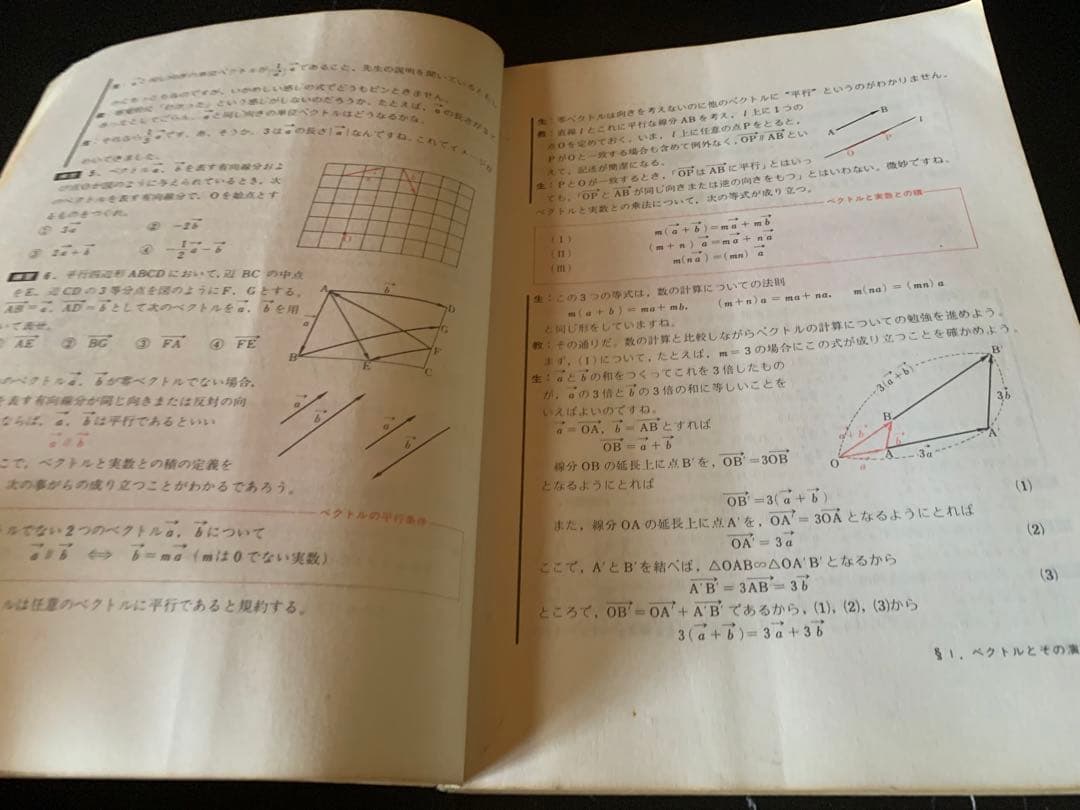 と同じ向きの単位ベクトルが
であること，先生の説明を聞いている
いかめしい感じの式でどうもピンときません．
という感じがしないのだろうか．たとえば，
と同じ向きの単位ベクトルはどうなるかな．
です．あ，そうか．3はaの長さ|a|なんですね．これでイメージが
わいてきました．
練習 5．ベクトルa，bを表す有向線分およ
び点Oが図のように与えられているとき，次
のベクトルを表す有向線分で，Oを始点とす
るものをつくれ．
① 3a ② −2b
③ 2a+b ④ −1/2 a−b
a b
O
練習 6．平行四辺形ABCDにおいて，辺BCの中点
をE，辺CDの3等分点を図のようにF，Gとする．
AB=a，AD=bとして次のベクトルをa，bを用
いて表せ．
① AE ② BG ③ FA ④ FE
A b D
a G
B E F C
のベクトルa，bが零ベクトルでない場合，
を表す有向線分が同じ向きまたは反対の向
ならば，a，bは平行であるといい
a∥b
a b a b
こで，ベクトルと実数との積の定義を
次の事がらの成り立つことがわかるであろう．
ベクトルの平行条件
ルでない2つのベクトルa，bについて
a∥b ⟺ b=ma (mは0でない実数)
ルは任意のベクトルに平行であると規約する．
生：零ベクトルは向きを考えないのに他のベクトルに“平行”というのがわかりません．
教：直線lとこれに平行な線分ABを考え，l上に1つの
点Oを定めておく．いま，l上に任意の点Pをとると，
PがOと一致する場合も含めて例外なく，OP∥ABとい
えて，記述が簡潔になる．
生：PとOが一致するとき，「OPはABに平行」とはいっ
ても，「OPとABが同じ向きまたは逆の向きをもつ」とはいわない．微妙ですね．
A B l
O P
ベクトルと実数との乗法について，次の等式が成り立つ．
ベクトルと実数との積
(Ⅰ) m(a+b)=ma+mb
(Ⅱ) (m+n)a=ma+na
(Ⅲ) m(na)=(mn)a
生：この3つの等式は，数の計算についての法則
m(a+b)=ma+mb, (m+n)a=ma+na, m(na)=(mn)a
と同じ形をしていますね．
教：その通りだ．数の計算と比較しながらベクトルの計算についての勉強を進めよう．
まず，(Ⅰ)について，たとえば，m=3の場合にこの式が成り立つことを確かめよう．
生：aとbの和をつくってこれを3倍したもの
が，aの3倍とbの3倍の和に等しいことを
いえばよいのですね．
a=OA，b=ABとすれば
OB=a+b
線分OBの延長上に点B'を，OB'=3OB
となるようにとれば
3(a+b) B'
B 3b
a+b b
O a A 3a A'
OB'=3(a+b) (1)
また，線分OAの延長上に点A'を，OA'=3OAとなるようにとれば
OA'=3a (2)
ここで，A'とB'を結べば，△OAB∽△OA'B'となるから
A'B'=3AB=3b (3)
ところで，OB'=OA'+A'B'であるから，(1)，(2)，(3)から
3(a+b)=3a+3b
§1．ベクトルとその演